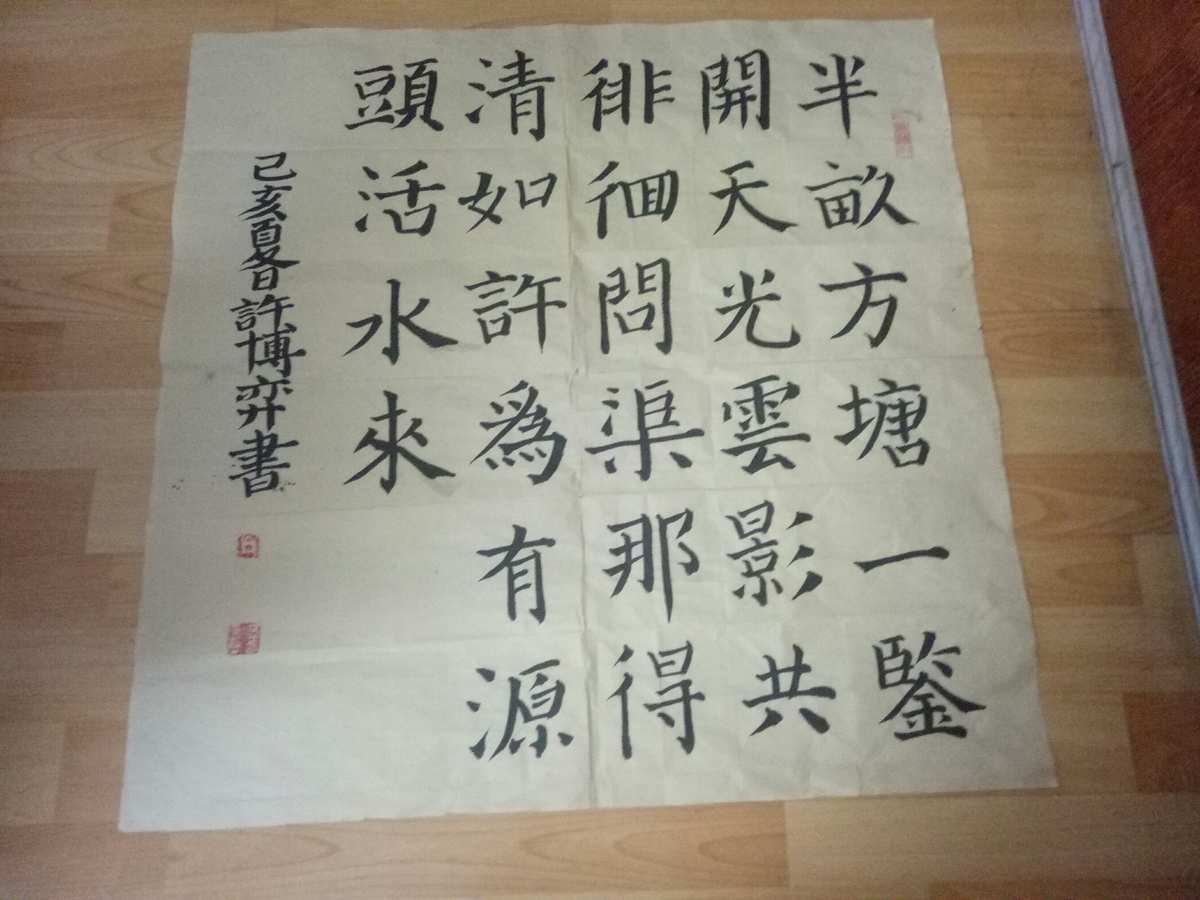 半畝方塘一鑒
開天光雲影共
徘徊問渠那得
清如許爲有源
頭活水來
己亥夏日許博弈書